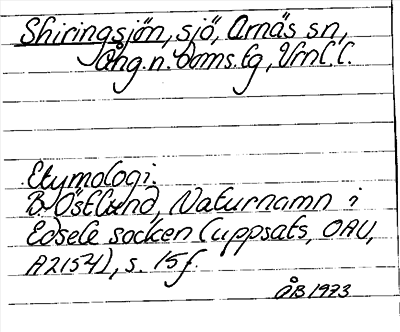 Skiringsjön, sjö, Arnäs sn,
Ång.n. Doms.tg, Vrnl. l.
Etymologi:
B. Östlund, Naturnamn i
Edsele socken (uppsats, OAU,
A2154), s. 15f.
ÅB 1973